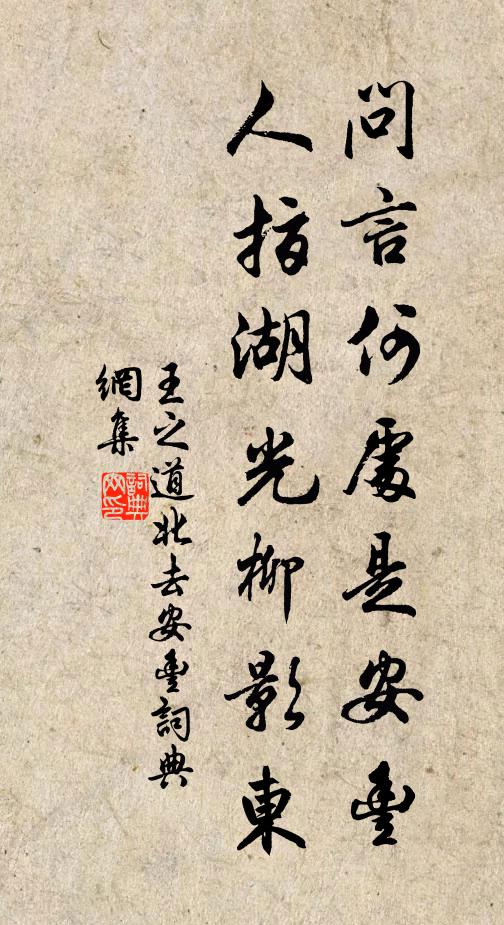 問言何處是安豐
人指湖光柳影東
王之道北去安豐詞典
網集
詞典
網印